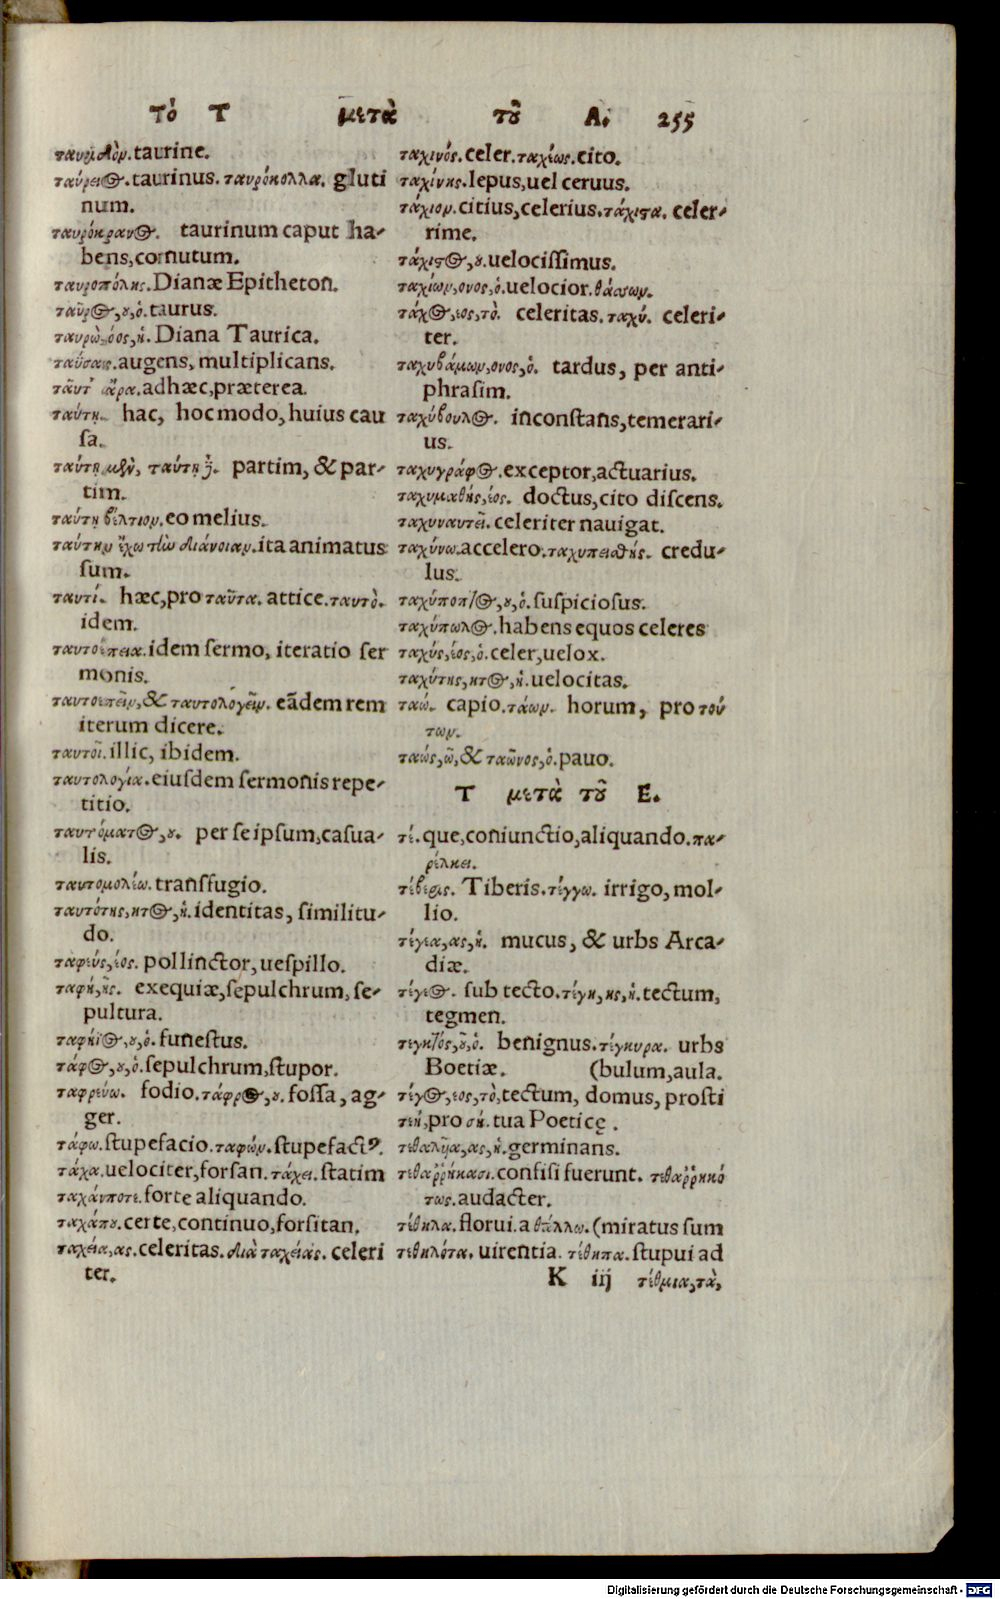 τὸ Τ μετὰ τοῦ Α. 255
ταυρηδὸν. taurine.
ταύρει⊙. taurinus. ταυρόκολλα. gluti
num.
ταυρόκραν⊙. taurinum caput ha-
bens, cornutum.
ταυροπόλης. Dianæ Epitheton.
ταῦρ⊙, ȣ, ὁ. taurus.
ταυρὼ, όος, ἡ. Diana Taurica.
ταΰσας. augens, multiplicans.
ταῦτ' ἄρα. ad hæc, præterea.
ταύτῃ. hac, hoc modo, huius cau
sa.
ταύτῃ μὲν, ταύτῃ δὲ. partim, & par-
tim.
ταύτῃ βέλτιον. eo melius.
ταύτην ἔχω τὴν διάνοιαν. ita animatus
sum.
ταυτί. hæc, pro ταῦτα. attice. ταυτὸ.
idem.
ταυτοέπεια. idem sermo, iteratio ser
monis.
ταυτοεπεῖν, & ταυτολογεῖν. eãdem rem
iterum dicere.
ταυτοῖ. illic, ibidem.
ταυτολογία. eiusdem sermonis repe-
titio.
ταυτόματ⊙, ȣ. per se ipsum, casua-
lis.
ταυτομολέω. transfugio.
ταυτότης, ητ⊙, ἡ. identitas, similitu-
do.
ταφεύς, έος. pollinctor, uespillo.
ταφή, ῆς. exequiæ, sepulchrum, se-
pultura.
ταφήϊ⊙, ȣ, ὁ. funestus.
τάφ⊙, ȣ, ὁ. sepulchrum, stupor.
ταφρεύω. fodio. τάφρ⊙, ȣ. fossa, ag-
ger.
τάφω. stupefacio. ταφών. stupefactꝰ.
τάχα. uelociter, forsan. τάχει. statim
ταχάνποτε. forte aliquando.
ταχάπȣ. certe, continuo, forsitan.
ταχεία, ας. celeritas. διὰ ταχείας. celeri
ter.
ταχινός. celer. ταχέως. cito.
ταχίνης. lepus, uel ceruus.
τάχιον. citius, celerius. τάχιστα. celer-
rime.
τάχιστ⊙, ȣ. uelocissimus.
ταχίων, ονος, ὁ. uelocior. θάσσων.
τάχ⊙, εος, τὸ. celeritas. ταχύ. celeri-
ter.
ταχυβάμων, ονος, ὁ. tardus, per anti-
phrasim.
ταχύβουλ⊙. inconstans, temerari-
us.
ταχυγράφ⊙. exceptor, actuarius.
ταχυμαθής, έος. doctus, cito discens.
ταχυναυτεῖ. celeriter nauigat.
ταχύνω. accelero. ταχυπειθής. credu-
lus.
ταχύποπτ⊙, ȣ, ὁ. suspiciosus.
ταχύπωλ⊙. habens equos celeres
ταχύς, έος, ὁ. celer, uelox.
ταχύτης, ητ⊙, ἡ. uelocitas.
ταώ. capio. τάων. horum, pro τού
των.
ταώς, ῶ, & ταῶνος, ὁ. pauo.
Τ μετὰ τοῦ Ε.
τέ. que, coniunctio, aliquando. πα-
ρέλκει.
τέβερις. Tiberis. τέγγω. irrigo, mol-
lio.
τέγεα, ας, ἡ. mucus, & urbs Arca-
diæ.
τέγε⊙. sub tecto. τέγη, ης, ἡ. tectum,
tegmen.
τεγκτός, ȣ, ὁ. benignus. τέγκυρα. urbs
Boetiæ. (bulum, aula.
τέγ⊙, εος, τὸ, tectum, domus, prosti
τεή, pro σή. tua Poetice.
τεθαλῆα, ας, ἡ. germinans.
τεθαῤῥήκασι. confisi fuerunt. τεθαῤῥηκό
τως. audacter.
τέθηλα. florui. a θάλλω. (miratus sum
τεθηλότα. uirentia. τέθηπα. stupui ad
K iij τέθμια, τὰ,
Digitalisierung gefördert durch die Deutsche Forschungsgemeinschaft - DFG